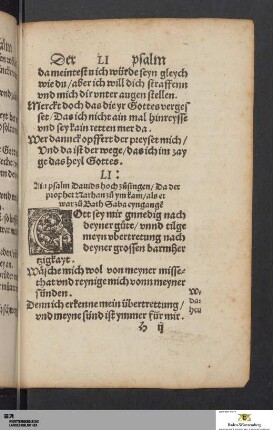 Der LI psalm
da meintest u ich würde seyn gleych
wie du / aber ich will dich straffenn
vnd mich dir vnter augen stellen.
Merck doch das die yr Gottes verges
set / Das ich nicht ain mal hinreysse
vnd sey kain retten mer da.
Wer danck opffert der preyset mich /
Vnd da ist der wege / das ich im zay
ge das heyl Gottes.
LI:
Ain psalm Dauids hoch zůsingen / Da der
prophet Nathan zů ym kam / als er
war zů Bath Saba eyngangē
GOtt sey mir gnnedig nach
deyner güte / vnnd tilge
meyn vbertrettung nach
deyner grossen barmher
tzigkayt.
Wäsche mich wol von meyner misse-
that vnd reynige mich vonn meyner
sünden.
Denn ich erkenne mein übertrettung /
vnd meyne sünd ist ymmer für mir.
H ij
Baden-Württemberg